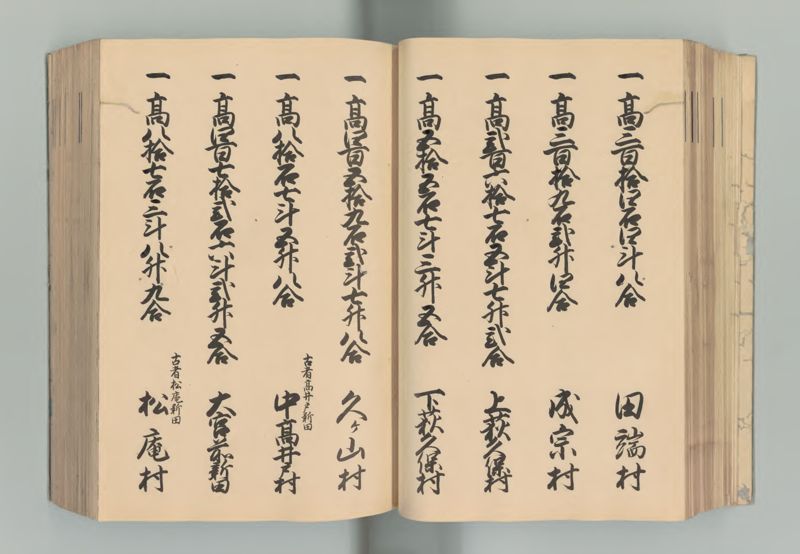 一 高三百拾四石四斗八合 田端村
一 高三百拾九石弐升四合 成宗村
一 高弐百六拾七石五斗七升弐合 上荻久保村
一 高五拾五石七斗三升五合 下荻久保村
一 高四百五拾九石弐斗七升八合 久ヶ山村
古者高井戸新田
一 高八拾石七斗五升八合 中高井戸村
一 高四百七拾弐石六斗弐升五合 大宮前新田
古者松庵新田
一 高八拾七石三斗八升九合 松庵村